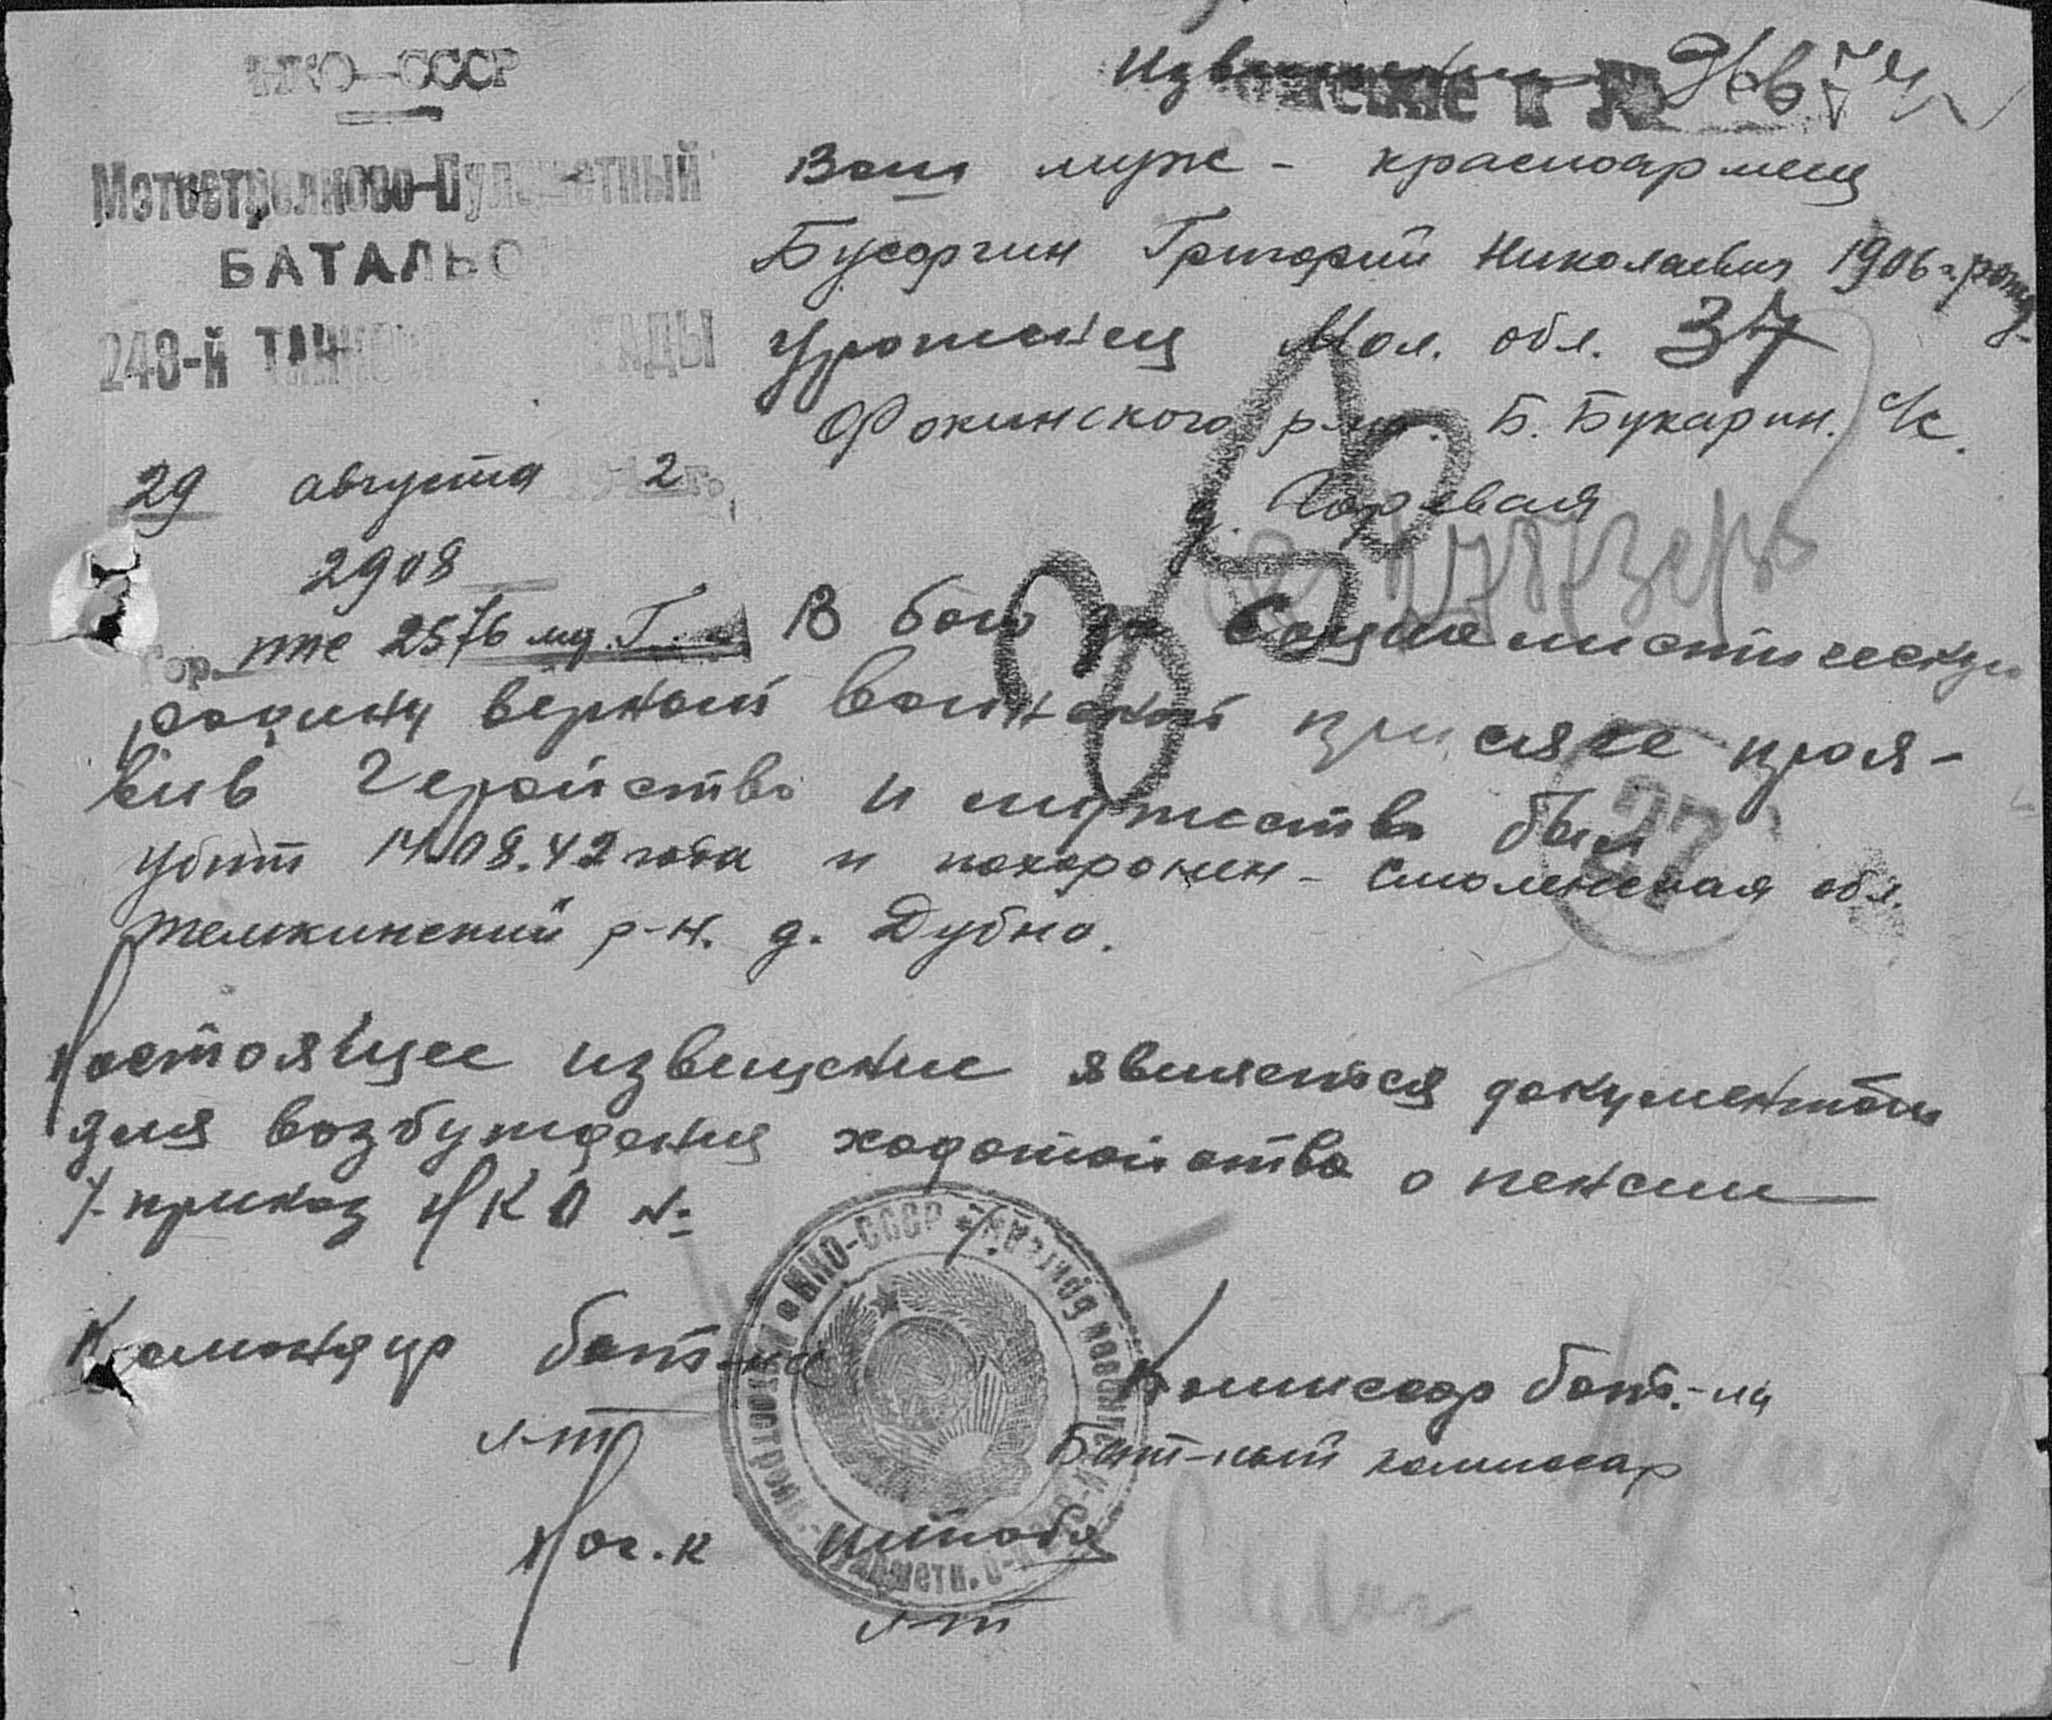 НКО-СССР
Мотострелково-Пулеметный
БАТАЛЬО
248-й
29 августа 2 г.
2908
ппс 2576
Извещение
Ваш муж - красноармеец
Бусоргин Григорий Николаевич 1906 г. рожд.
Уроженец Мол. обл. 37
Фокинского р-на. Б. Букарин. с/с.
д. Харевая
В бою за Социалистическую
родину верный воинской присяге прояв-
вив геройство и мужество был
убит 14.08.42 года и похоронен - Смоленская обл.
Темкинский р-н. д. Дубно.
27
Настоящее извещение является документом
для возбуждения ходатайства о пенсии
/-приказ НКО №
Командир бат-на
л-т
Комиссар бат.-на
Бат-ный комиссар
Нач.к штаба
л-т
НКО-СССР